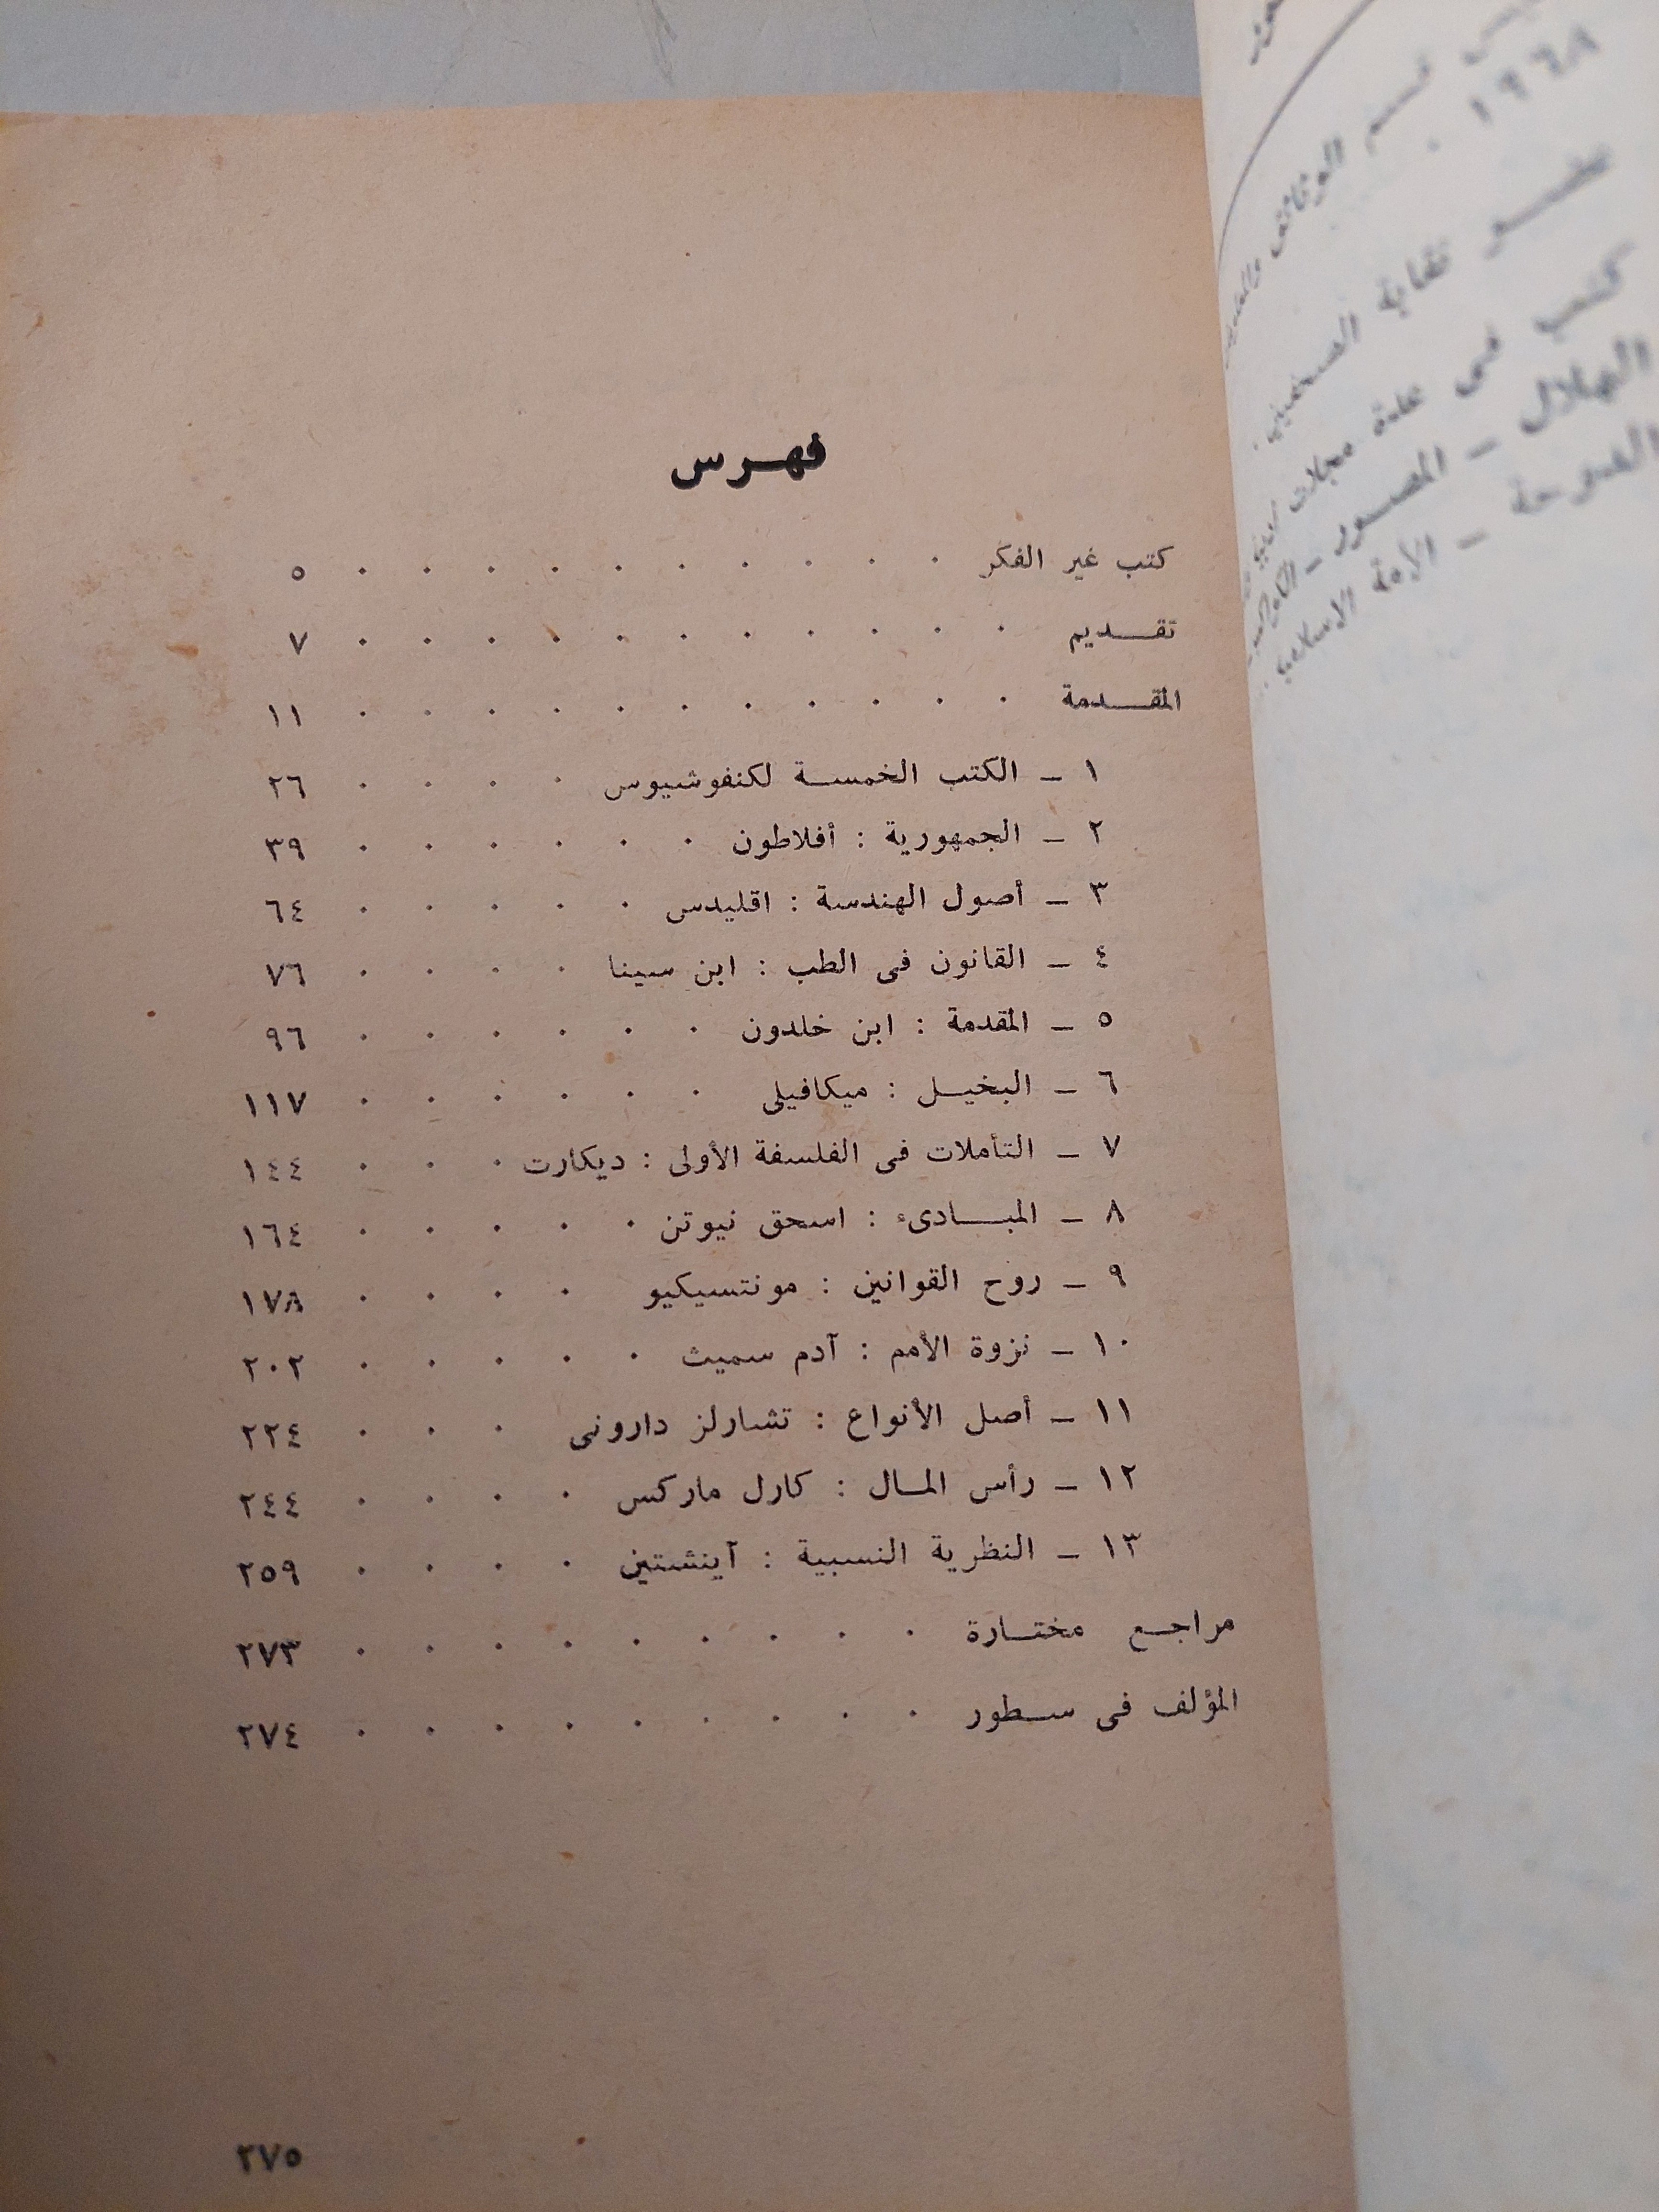 فهرس
كتب غير الفكر . . . . . . . . . . ٥
تقديم . . . . . . . . . . . ٧
المقدمة . . . . . . . . . . . ١١
١ ـ الكتب الخمسة لكنفوشيوس . . . . ٢٦
٢ ـ الجمهورية : أفلاطون . . . . . . ٣٩
٣ ـ أصول الهندسة : اقليدس . . . . . ٦٤
٤ ـ القانون فى الطب : ابن سينا . . . . ٧٦
٥ ـ المقدمة : ابن خلدون . . . . . . ٩٦
٦ ـ البخيل : ميكافيلى . . . . . . ١١٧
٧ ـ التأملات فى الفلسفة الأولى : ديكارت . . . ١٤٤
٨ ـ المبادىء : اسحق نيوتن . . . . . ١٦٤
٩ ـ روح القوانين : مونتسيكيو . . . . ١٧٨
١٠ ـ نزوة الأمم : آدم سميث . . . . . ٢٠٢
١١ ـ أصل الأنواع : تشارلز دارونى . . . ٢٢٤
١٢ ـ رأس المال : كارل ماركس . . . . ٢٤٤
١٣ ـ النظرية النسبية : آينشتين . . . . ٢٥٩
مراجع مختارة . . . . . . . . . ٢٧٣
المؤلف فى سطور . . . . . . . . . ٢٧٤
٢٧٥
قسم الوثائق
١٩٦٨ .
عضو نقابة الصحفيين .
كتب فى عدة مجلات
الهلال ـ المصور ـ
الدوحة ـ الأمة الاسلامية .